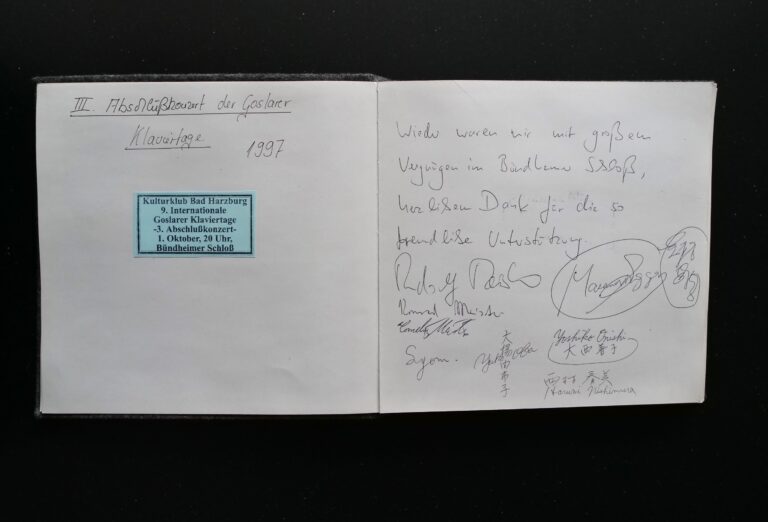 III. Abschlußkonzert der Goslarer
Klaviertage 1997
Kulturklub Bad Harzburg
9. Internationale
Goslarer Klaviertage
-3. Abschlußkonzert-
1. Oktober, 20 Uhr,
Bündheimer Schloß
Wieder waren wir mit großem
Vergnügen im Bündheimer Schloß,
herzlichen Dank für die so
freundliche Unterstützung.
Rudolf Meister
Konrad Meister
Yoshiko Onishi
西村 春美
Harumi Nishimura